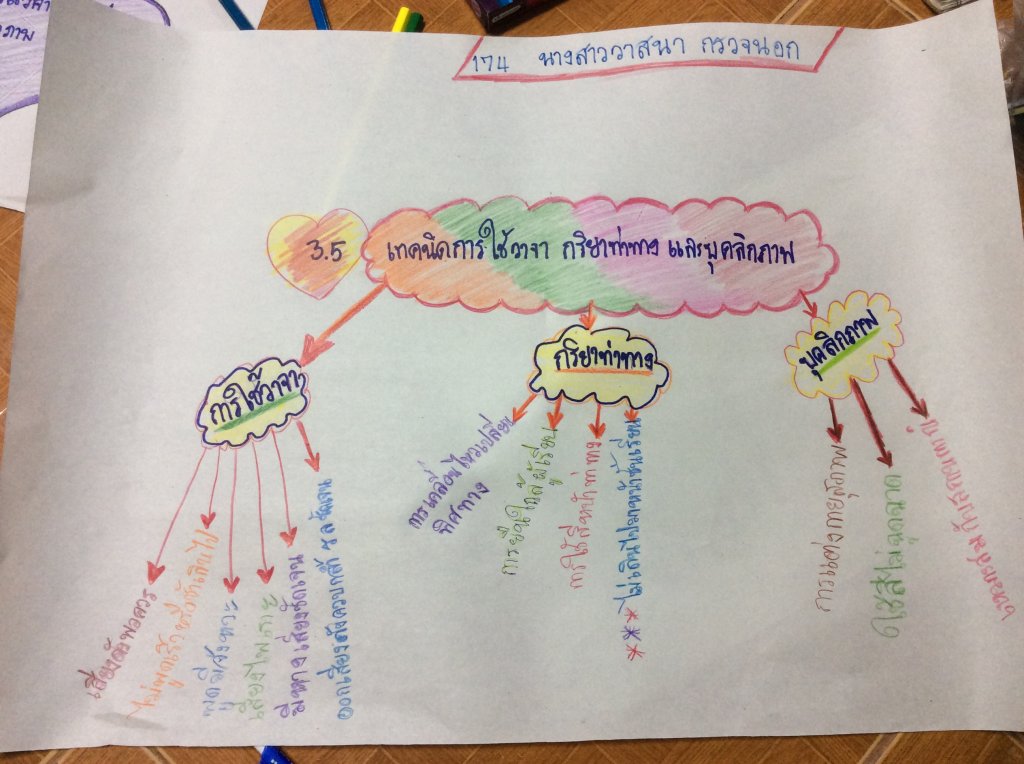 174 นางสาววาสนา กรวจนอก
3.5
เทคนิดการใช้วาจา กริยาท่าทาง และบุคลิกภาพ
การใช้วาจา
เสียงดังพอควร
ไม่พูดเร็วหรือช้าเกินไป
พูดมีจังหวะ
เสียงไพเราะ
มีหางเสียงชัดเจน
ออกเสียงอักควบกล้ำ ร ล ชัดเจน
กริยาท่าทาง
การเคลื่อนไหวเปลี่ยน
ทิศทาง
การยืนใกล้ผู้เรียน
การใช้สีหน้าท่าทาง
*** ไม่เดินไปมาหน้าชั้นเรียน
บุคลิกภาพ
การแต่งกายสุภาพ
ใช้สีไม่ฉูดฉาด
ภาพ